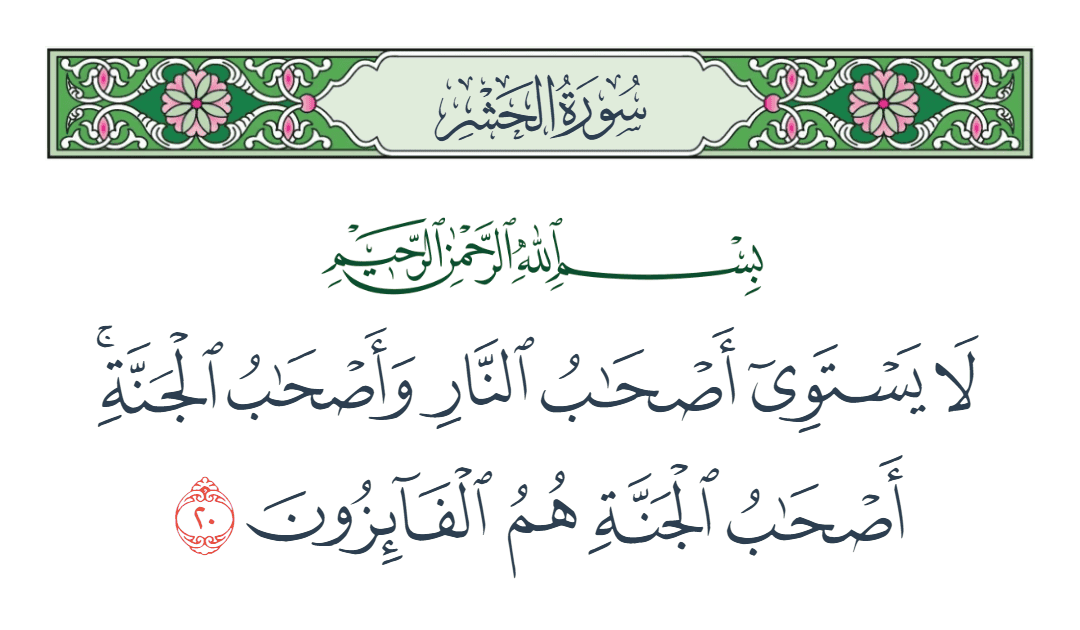 سُورَةُ الحَشْرِ
بِسْمِ ٱللَّهِ ٱلرَّحْمَٰنِ ٱلرَّحِيمِ
لَا يَسْتَوِىٓ أَصْحَٰبُ ٱلنَّارِ وَأَصْحَٰبُ ٱلْجَنَّةِ ۚ
أَصْحَٰبُ ٱلْجَنَّةِ هُمُ ٱلْفَآئِزُونَ ٢٠